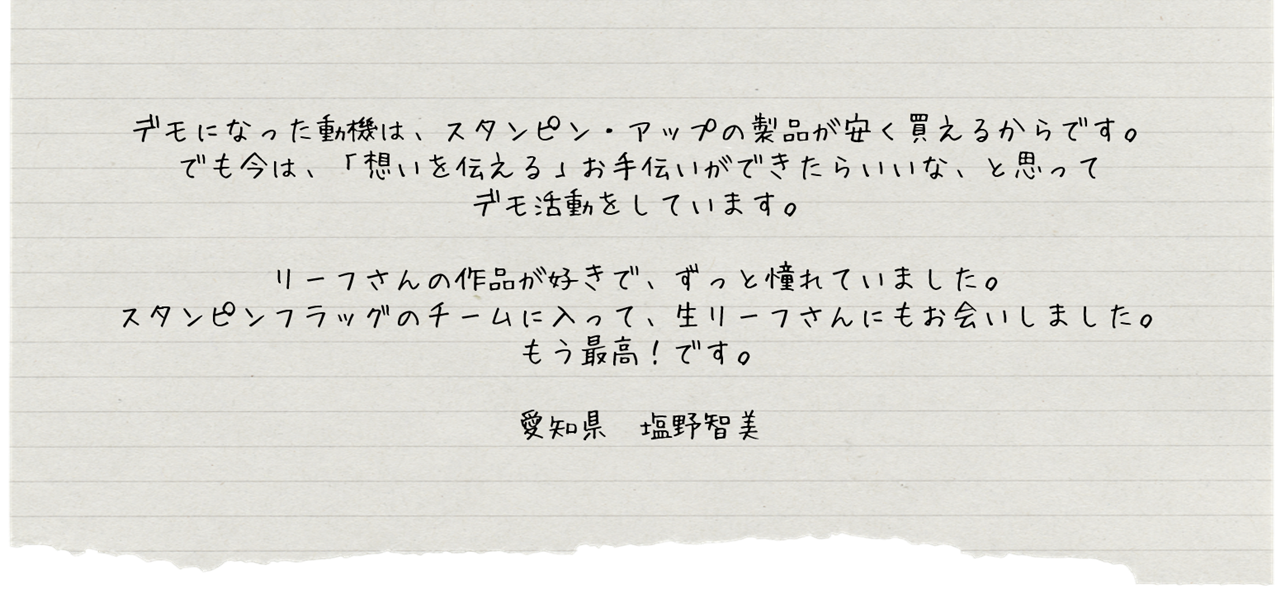 デモになった動機は、スタンピン・アップの製品が安く買えるからです。
でも今は、「想いを伝える」お手伝いができたらいいな、と思って
デモ活動をしています。
リーフさんの作品が好きで、ずっと憧れていました。
スタンピンフラッグのチームに入って、生リーフさんにもお会いしました。
もう最高！です。
愛知県　塩野智美